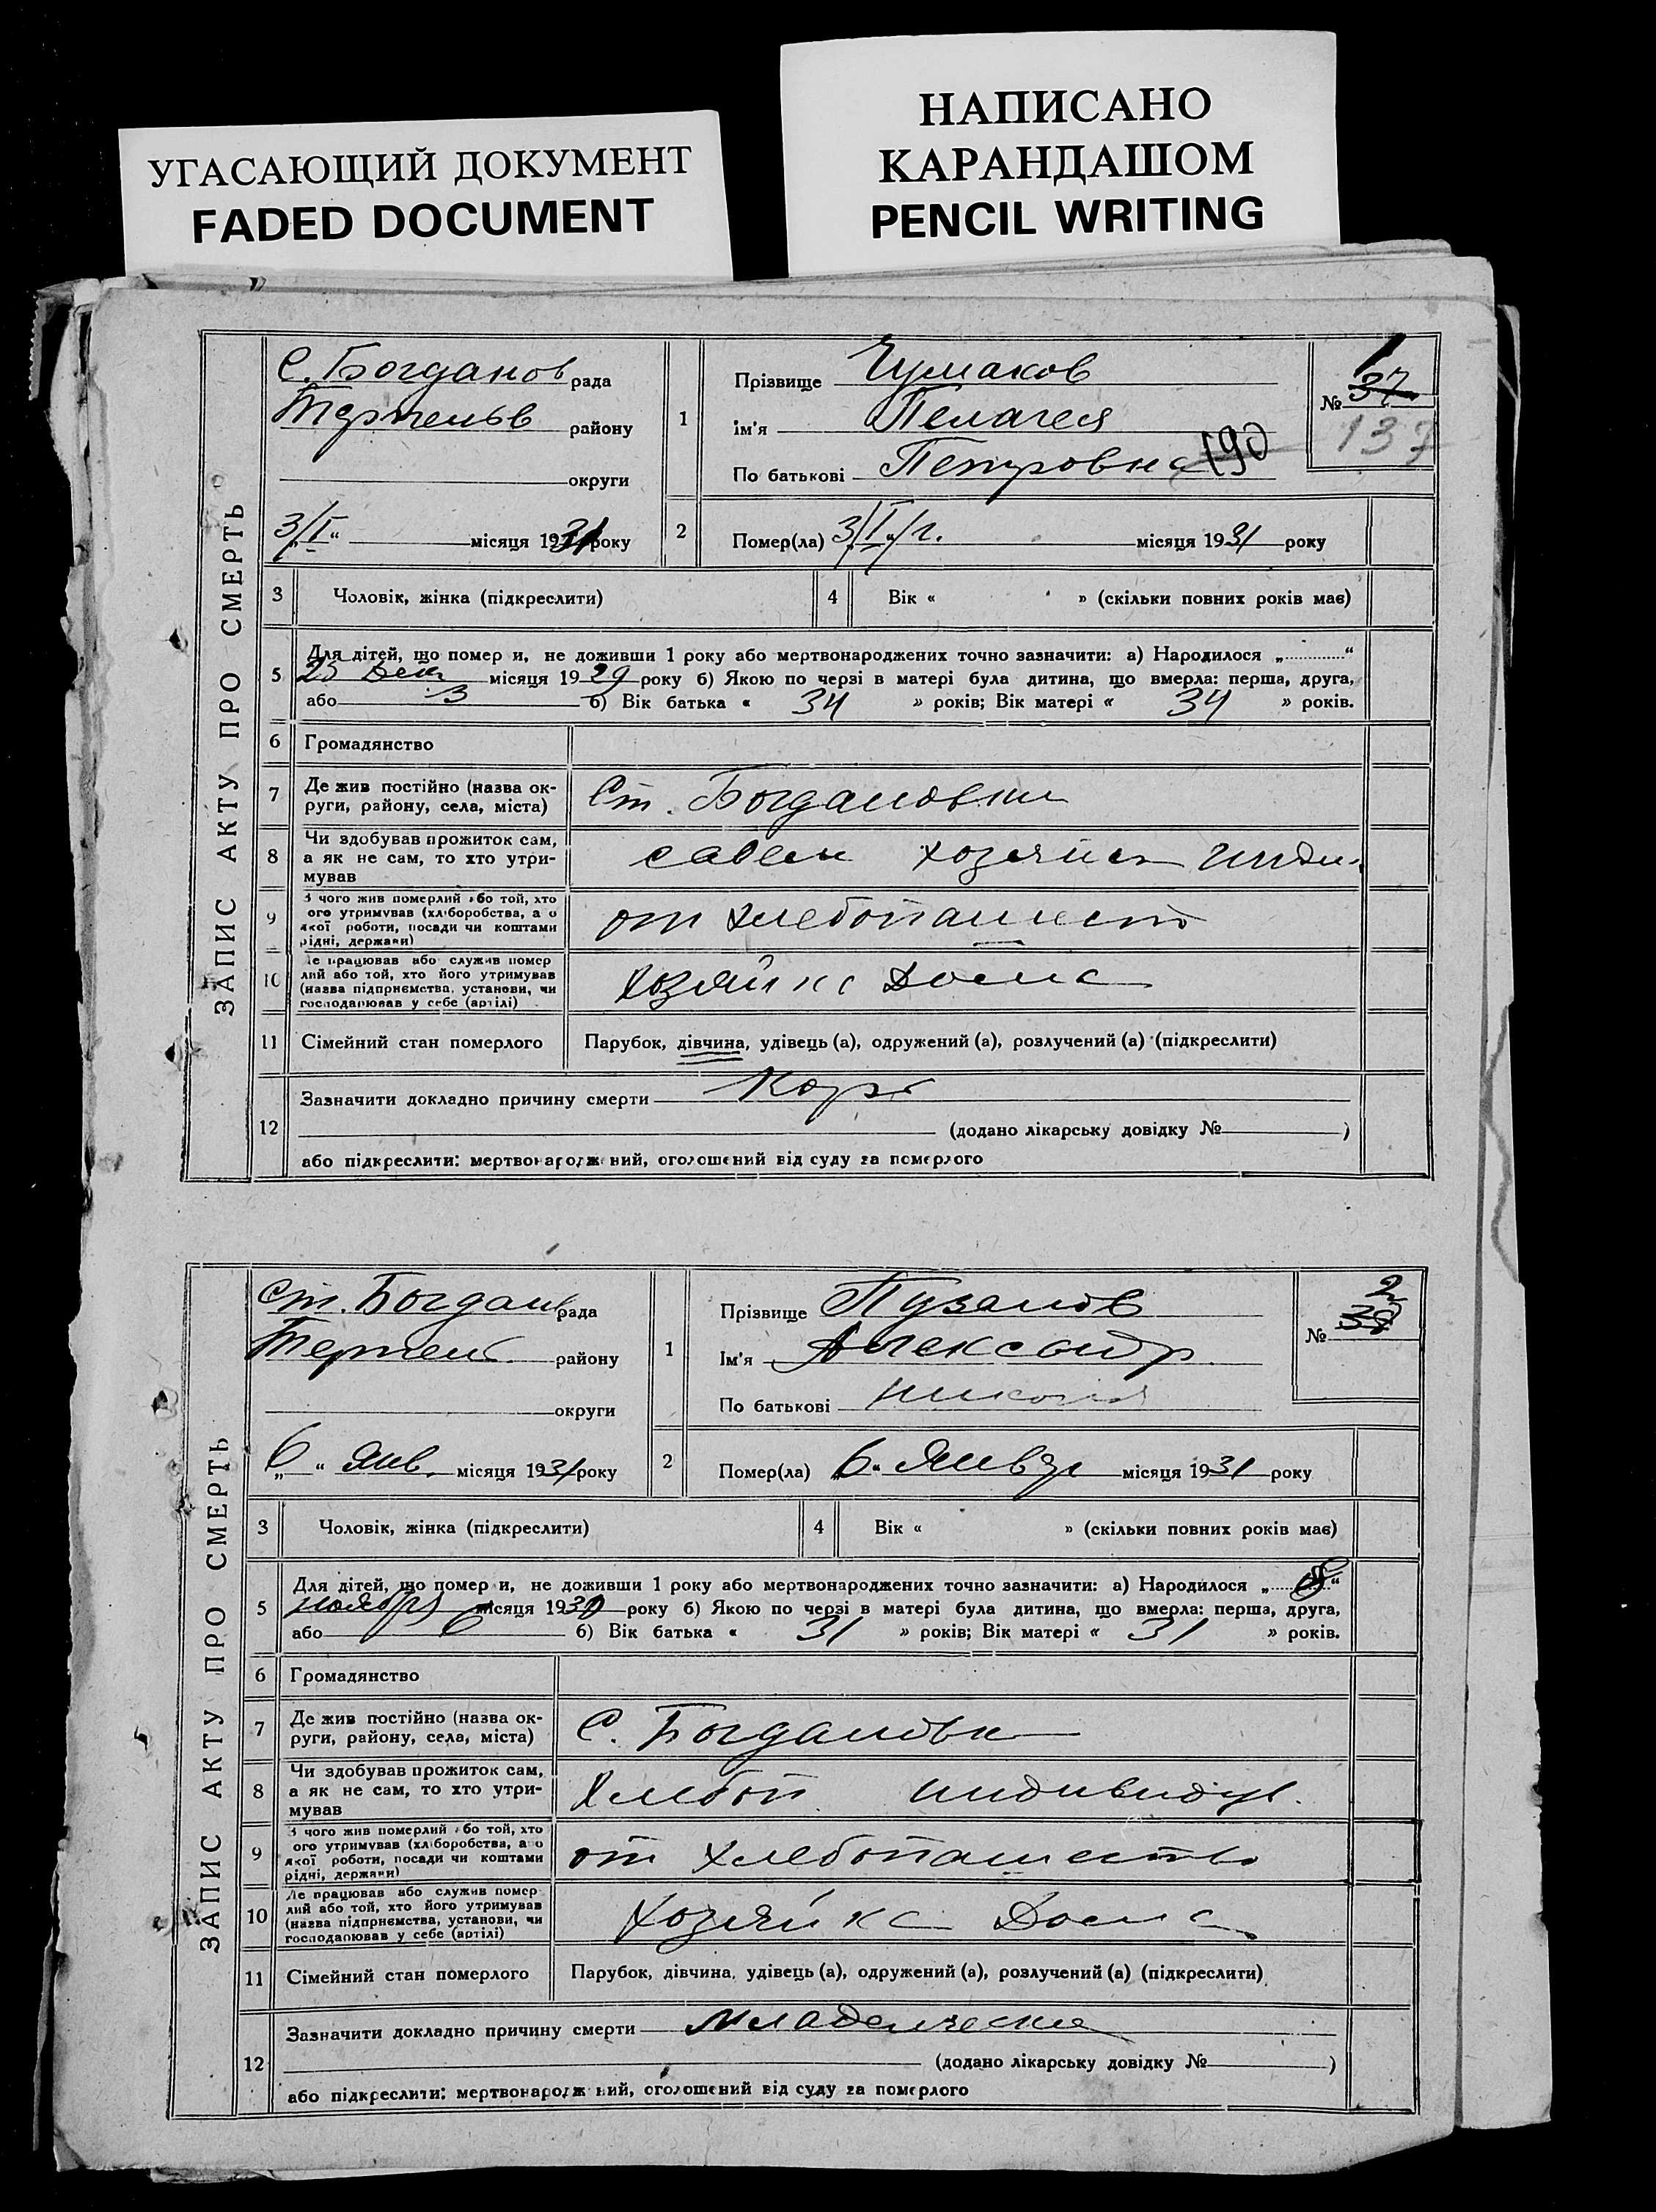 УГАСАЮЩИЙ ДОКУМЕНТ
FADED DOCUMENT
НАПИСАНО
КАРАНДАШОМ
PENCIL WRITING
ЗАПИС АКТУ ПРО СМЕРТЬ
С. Богданов рада
району
округи
3/I “ місяця 1931 року
1
Прізвище Чумаков
ім'я Пелагея
По батькові Петровна 190
№ 37 1
137
2
Помер(ла) 3/I місяця 1931 року
3 Чоловік, жінка (підкреслити)
4 Вік « » (скільки повних років має)
5 Для дітей, що померли, не доживши 1 року або мертвонароджених точно зазначити: а) Народилося „ “
25 Дек місяця 1929 року б) Якою по черзі в матері була дитина, що вмерла: перша, друга,
або 3 б) Вік батька « 34 » років; Вік матері « 34 » років.
6 Громадянство
7 Де жив постійно (назва ок-
руги, району, села, міста) Ст. Богдановки
8 Чи здобував прожиток сам,
а як не сам, то хто утри-
мував
9 З чого жив померлий або той, хто
ого утримував (хліборобства, а о
якої роботи, посади чи коштами
рідні, держави)
от хлебопашест
10 Де працював або служив помер
лий або той, хто його утримував
(назва підприємства, установи, чи
господарював у себе (артілі)
Хозяйка Дома
11 Сімейний стан померлого Парубок, дівчина, удівець (а), одружений (а), розлучений (а) (підкреслити)
12 Зазначити докладно причину смерти Корь
(додано лікарську довідку № )
або підкреслити: мертвонароджений, оголошений від суду за померлого
ЗАПИС АКТУ ПРО СМЕРТЬ
Ст. Богданов рада
району
округи
„6“ Янв. місяця 1931 року
1
Прізвище Пузанов
Ім'я Александр
По батькові Никола
№ 38 2
2
Помер(ла) „6“ Январ місяця 1931 року
3 Чоловік, жінка (підкреслити)
4 Вік « » (скільки повних років має)
5 Для дітей, що померли, не доживши 1 року або мертвонароджених точно зазначити: а) Народилося „8“
ноября місяця 1930 року б) Якою по черзі в матері була дитина, що вмерла: перша, друга,
або 6 б) Вік батька « 31 » років; Вік матері « 31 » років.
6 Громадянство
7 Де жив постійно (назва ок-
руги, району, села, міста) С. Богдановка
8 Чи здобував прожиток сам,
а як не сам, то хто утри-
мував
Хлебоп. индивидуал.
9 З чого жив померлий або той, хто
ого утримував (хліборобства, а о
якої роботи, посади чи коштами
рідні, держави)
от хлебопашество
10 Де працював або служив помер
лий або той, хто його утримував
(назва підприємства, установи, чи
господарював у себе (артілі)
Хозяйка Дома
11 Сімейний стан померлого Парубок, дівчина, удівець (а), одружений (а), розлучений (а) (підкреслити)
12 Зазначити докладно причину смерти Младенческая
(додано лікарську довідку № )
або підкреслити: мертвонароджений, оголошений від суду за померлого